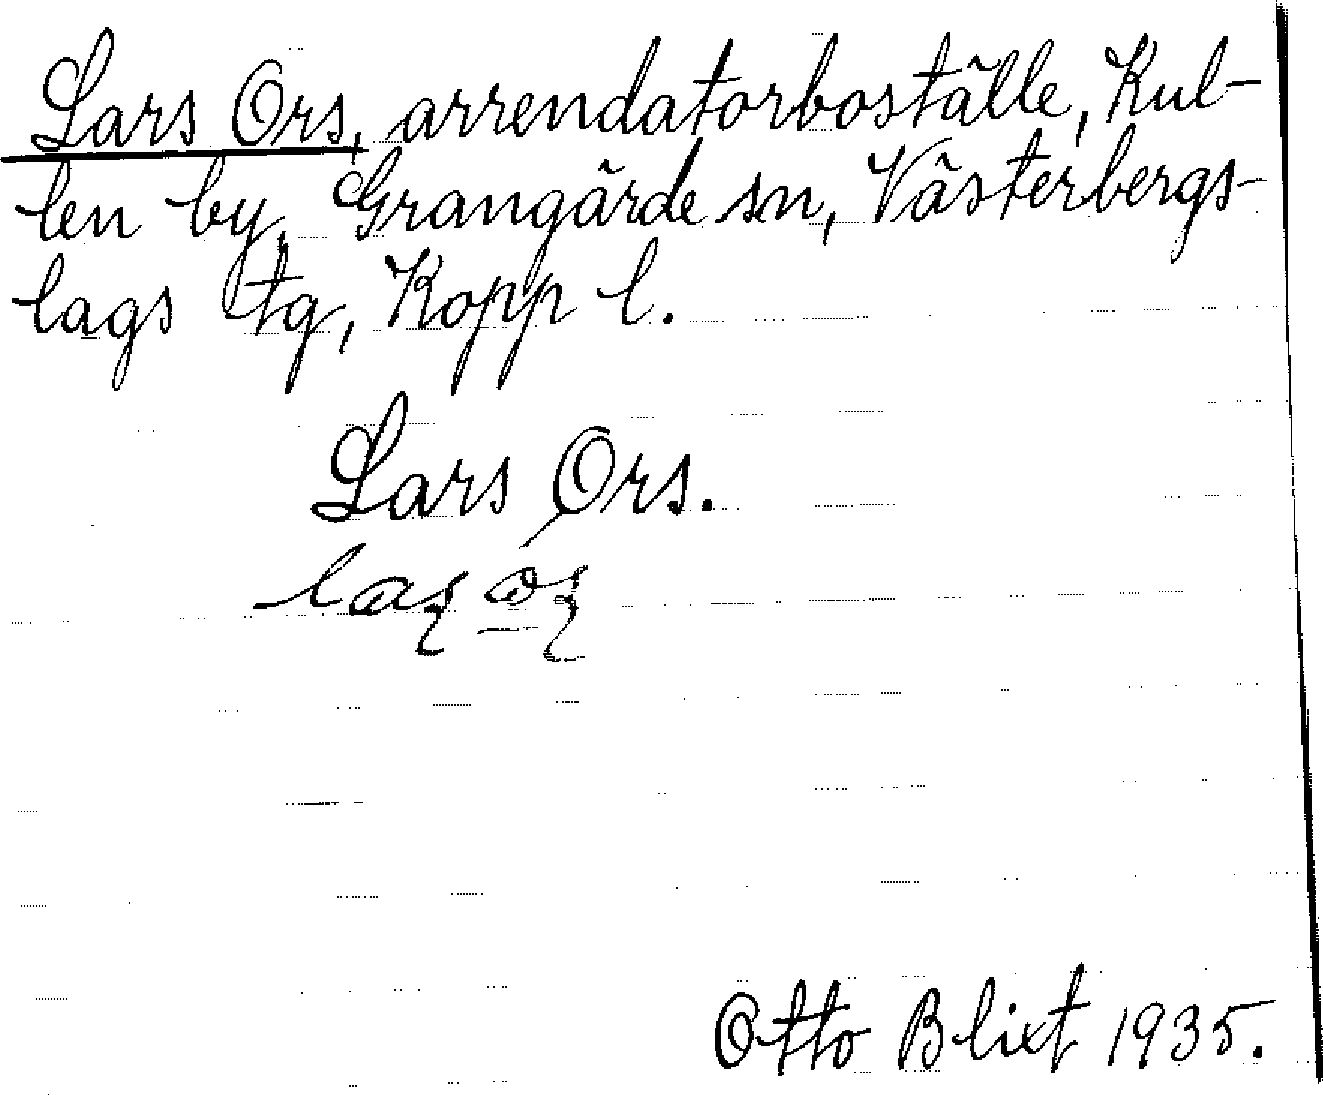 Lars Ors, arrendatorboställe, Kul-
len by, Grangärde sn, Västerbergs-
lags tg, Kopp l.
Lars Ors.
Otto Blixt 1935.